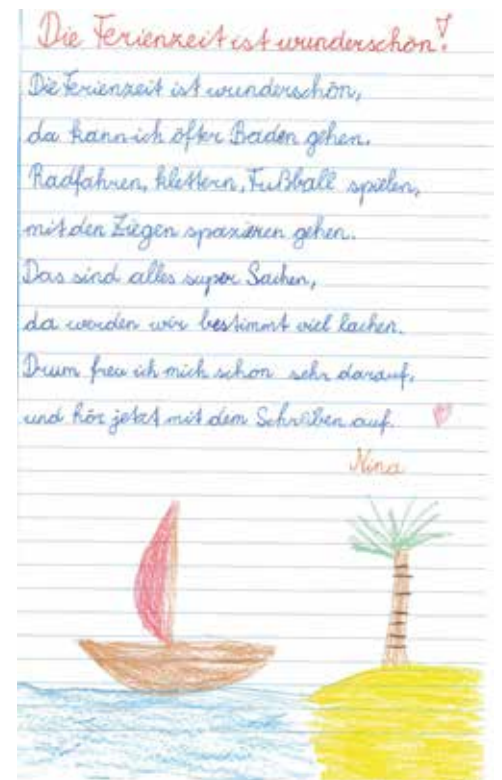 Die Ferienzeit ist wunderschön!
Die Ferienzeit ist wunderschön,
da kann ich öfter Baden gehen.
Radfahren, klettern, Fußball spielen,
mit den Ziegen spazieren gehen.
Das sind alles super Sachen,
da werden wir bestimmt viel lachen.
Drum freu ich mich schon sehr darauf,
und hör jetzt mit dem Schreiben auf.
Nina